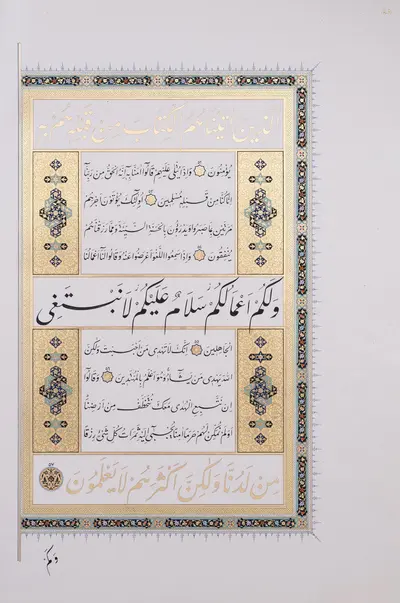 الَّذينَ اتَيْناهُمُ الْكِتابَ مِنْ قَبْلِهِ هُمْ بِهِ
يُؤْمِنُونَ وَاِذا يُتْلى عَلَيْهِمْ قالُوا امَنّا بِهِ اِنَّهُ الْحَقُّ مِنْ رَبِّنا
اِنّا كُنّا مِنْ قَبْلِهِ مُسْلِمينَ اُولئِكَ يُؤْتَوْنَ اَجْرَهُمْ
مَرَّتَيْنِ بِما صَبَرُوا وَيَدْرَؤُنَ بِالْحَسَنَةِ السَّيِّئَةَ وَمِمّا رَزَقْناهُمْ
يُنْفِقُونَ وَاِذا سَمِعُوا اللَّغْوَ اَعْرَضُوا عَنْهُ وَقالُوا لَنا اَعْمالُنا
وَلَكُمْ اَعْمالُكُمْ سَلامٌ عَلَيْكُمْ لا نَبْتَغِي
الْجاهِلينَ اِنَّكَ لا تَهْدي مَنْ اَحْبَبْتَ وَلكِنَّ
اللهَ يَهْدي مَنْ يَشاءُ وَهُوَ اَعْلَمُ بِالْمُهْتَدينَ وَقالُوا
اِنْ نَتَّبِعِ الْهُدى مَعَكَ نُتَخَطَّفْ مِنْ اَرْضِنا
اَوَلَمْ نُمَكِّنْ لَهُمْ حَرَمًا امِنًا يُجْبى اِلَيْهِ ثَمَراتُ كُلِّ شَيْءٍ رِزْقًا
مِنْ لَدُنّا وَلكِنَّ اَكْثَرَهُمْ لا يَعْلَمُونَ ٥٧
وَكَم